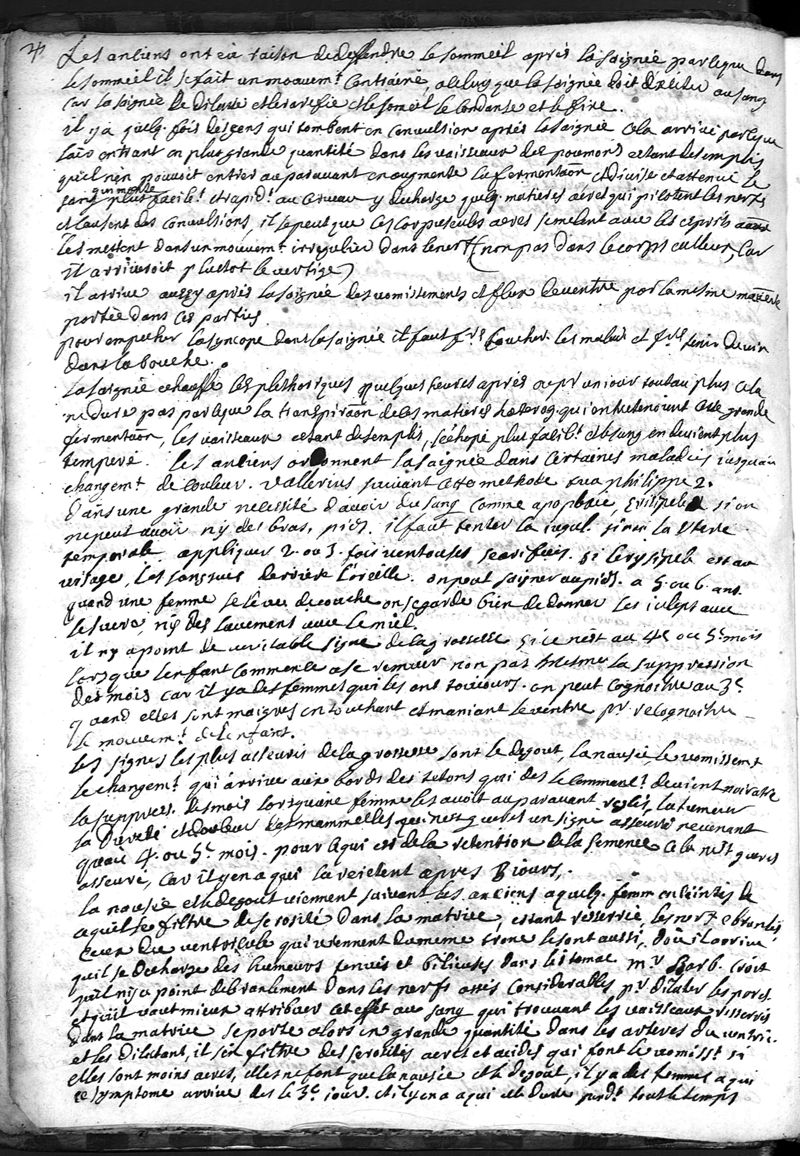 Les anciens ont eü raison de deffendre le sommeil aprés la saignée parceque dans
le sommeil il se fait un mouvem.t contraire, a celuy que la saignée doit exciter au sang
car la saignée le dilate et le rarefie et le someil le condanse et le fixe.
il y a quelq. fois des gens qui tombent en convulsion aprés la saignée cela arrive parceque
l'air entrant en plus grande quantité dans les vaisseaux des poumons estant desemplis
qu'il n'en pouvoit entrer au paravant en augmente la fermentaōn et divise et attenue le
sang qui monte plus facile.t et rapid.t au cerveau y decharge quelq. matieres acres qui picotent les nerfs
et causent des convulsions, il se peut que ces corpuscules acres se meslent avec les esprits
les mettent dans un mouvem.t irregulier dans le nerf (non pas dans le corps calleux, car
il arriveroit plustot le vertige)
il arrive aussy aprés la saignée des vomissements et flux de ventre par la mesme matiere
portée dans ces parties.
pour empecher la syncope dans la saignée il faut f.re coucher les malades et f.re tenir du vin
dans la bouche.
la saignée echauffe les plethoriques quelques heures aprés ou p.r un iour tout au plus cela
ne dure pas parceque la transpiraōn de les matieres heterog. qui entretenoient cette grande
fermentaōn, les vaisseaux estant desemplis, s'echape plus facil.t et le sang en devient plus
temperé. les anciens ordonnent la saignée dans certaines maladies iusqu'au
changem.t de couleur. vallerius suivant cette methode tua philippe 2.
Dans une grande necessité d'avoir du sang comme apoplexie, erisipele si on
ne peut avoir ny des bras, pieds. il faut tenter la iugul. sinon la
temporale. appliquer 2. ou 3. fois ventouses scarifiées. si l'erysipele est au
visage, les sangsues derriere l'oreille. on peut saigner au pied. a 5. ou 6. ans.
quand une femme releve de couche on se garde bien de donner les iuleps avec
le sucre, ny des lavemens avec le miel.
il n'y a point de veritable signe de la grossesse si ce n'est au 4e ou 5e mois
lorsque l'enfant commence a se remuer non pas mesme la suppression
des mois car il y a des femmes qui les ont tousiours. on peut cognoistre au 3e
quand elles sont maigres en touchant et maniant le ventre p.r recognoistre
le mouvem.t de l'enfant.
les signes les plus asseurés de la grossesse sont le degout, la nausée le vomissem.t
le changem.t qui arrive aux bords des tetons qui des le commence.t devient noiratre
la suppres. des mois lorsqu'une femme les avoit au paravant reglés, la tumeur
la dureté et douleur des mammelles qui n'est gueres un signe asseuré revenant
qu'au 4. ou 5e mois. pour ce qui est de la retention de la semence cela n'est gueres
asseuré, car il y en a qui la reietent apres 8 iours.
la nausée et le degout viennent suivant les anciens a quelq. femm. enceintes de
ce qu'il se filtre de serosité dans la matrice, estant resserrée les nerfs ebranlés
ceux du ventricule qui viennent du meme tronc le sont aussi, d'où il arrive
qu'il se decharge des humeurs tenues et bilieuses dans l'estomac M.r Barb. croit
qu'il n'y a point d'ebranlement dans les nerfs assés considerables p.r dilater les pores.
et qu'il vaut mieux attribuer cet effet au sang qui trouvant les vaisseaux resserrés
dans la matrice se porte alors en grande quantité dans les arteres du ventric.
et les dilatant, il s'en filtre des serosités acres et acides qui font le vomiss.t si
elles sont moins acres, elles ne font que la nausée et le degout, il y a des femmes a qui
ce symptome arrive des le 3e iour. et il y en a qui elle dure pend.t tout le temps